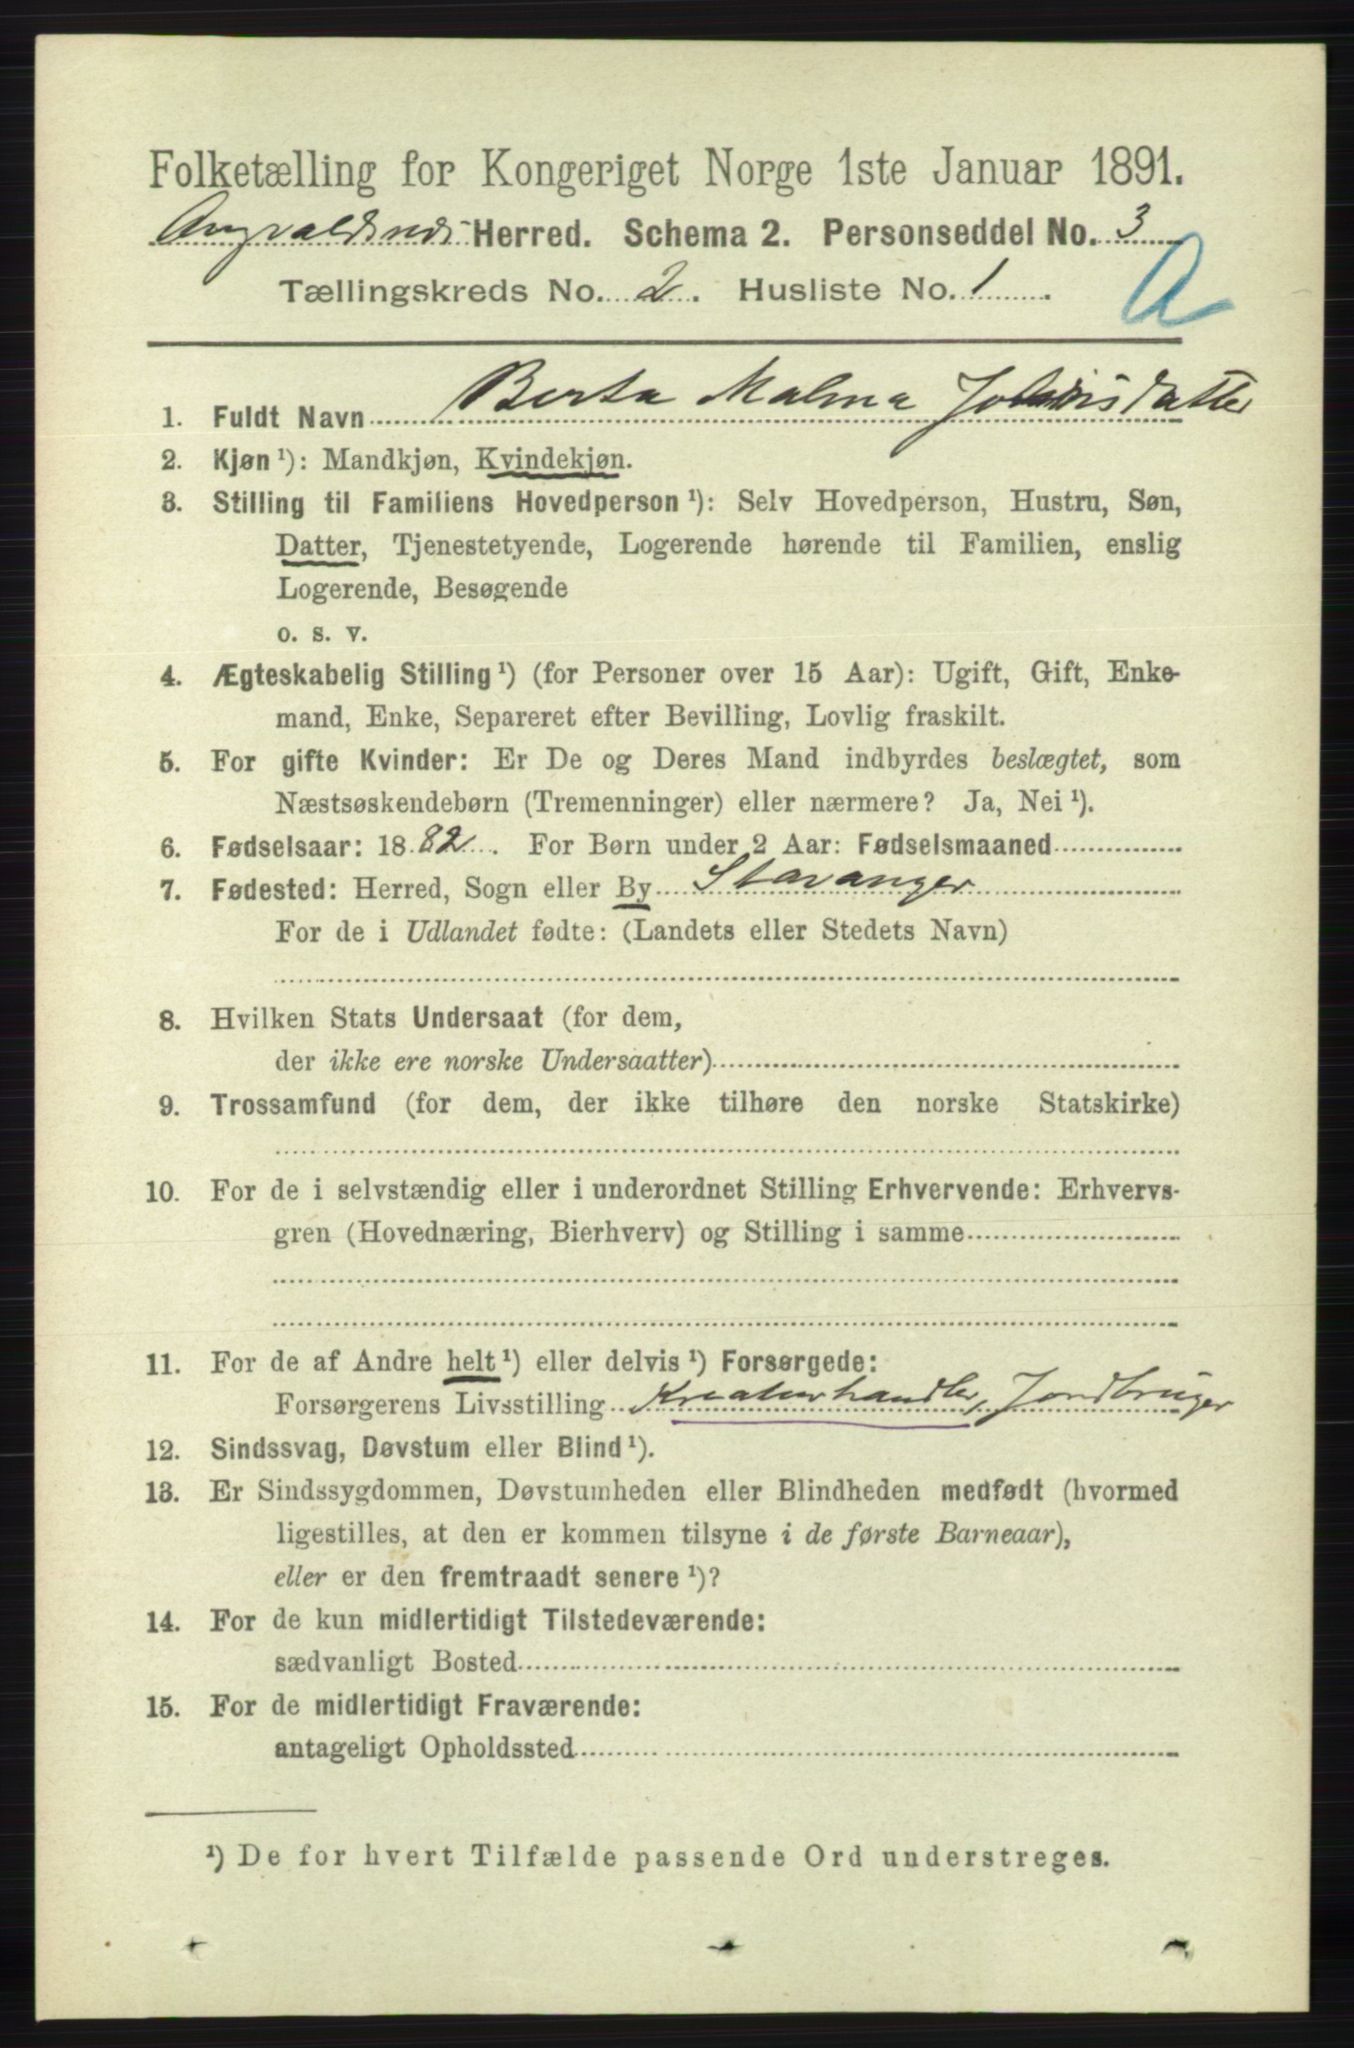 Folketælling for Kongeriget Norge 1ste Januar 1891.
Augvaldsnes Herred. Schema 2. Personseddel No. 3
Tællingskreds No. 2. Husliste No. 1.
A
1. Fuldt Navn Berta Malma
2. Kjøn ¹): Mandkjøn, Kvindekjøn.
3. Stilling til Familiens Hovedperson ¹): Selv Hovedperson, Hustru, Søn,
Datter, Tjenestetyende, Logerende hørende til Familien, enslig
Logerende, Besøgende
o. s. v.
4. Ægteskabelig Stilling ¹) (for Personer over 15 Aar): Ugift, Gift, Enke-
mand, Enke, Separeret efter Bevilling, Lovlig fraskilt.
5. For gifte Kvinder: Er De og Deres Mand indbyrdes beslægtet, som
Næstsøskendebørn (Tremenninger) eller nærmere? Ja, Nei ¹).
6. Fødselsaar: 1882. For Børn under 2 Aar: Fødselsmaaned
7. Fødested: Herred, Sogn eller By Stavanger
For de i Udlandet fødte: (Landets eller Stedets Navn)
8. Hvilken Stats Undersaat (for dem,
der ikke ere norske Undersaatter)
9. Trossamfund (for dem, der ikke tilhøre den norske Statskirke)
10. For de i selvstændig eller i underordnet Stilling Erhvervende: Erhvervs-
gren (Hovednæring, Bierhverv) og Stilling i samme
11. For de af Andre helt ¹) eller delvis ¹) Forsørgede:
Forsørgerens Livsstilling Kreaturhandler, Jordbruger
12. Sindssvag, Døvstum eller Blind ¹).
13. Er Sindssygdommen, Døvstumheden eller Blindheden medfødt (hvormed
ligestilles, at den er kommen tilsyne i de første Barneaar),
eller er den fremtraadt senere ¹)?
14. For de kun midlertidigt Tilstedeværende:
sædvanligt Bosted
15. For de midlertidigt Fraværende:
antageligt Opholdssted
¹) De for hvert Tilfælde passende Ord understreges.